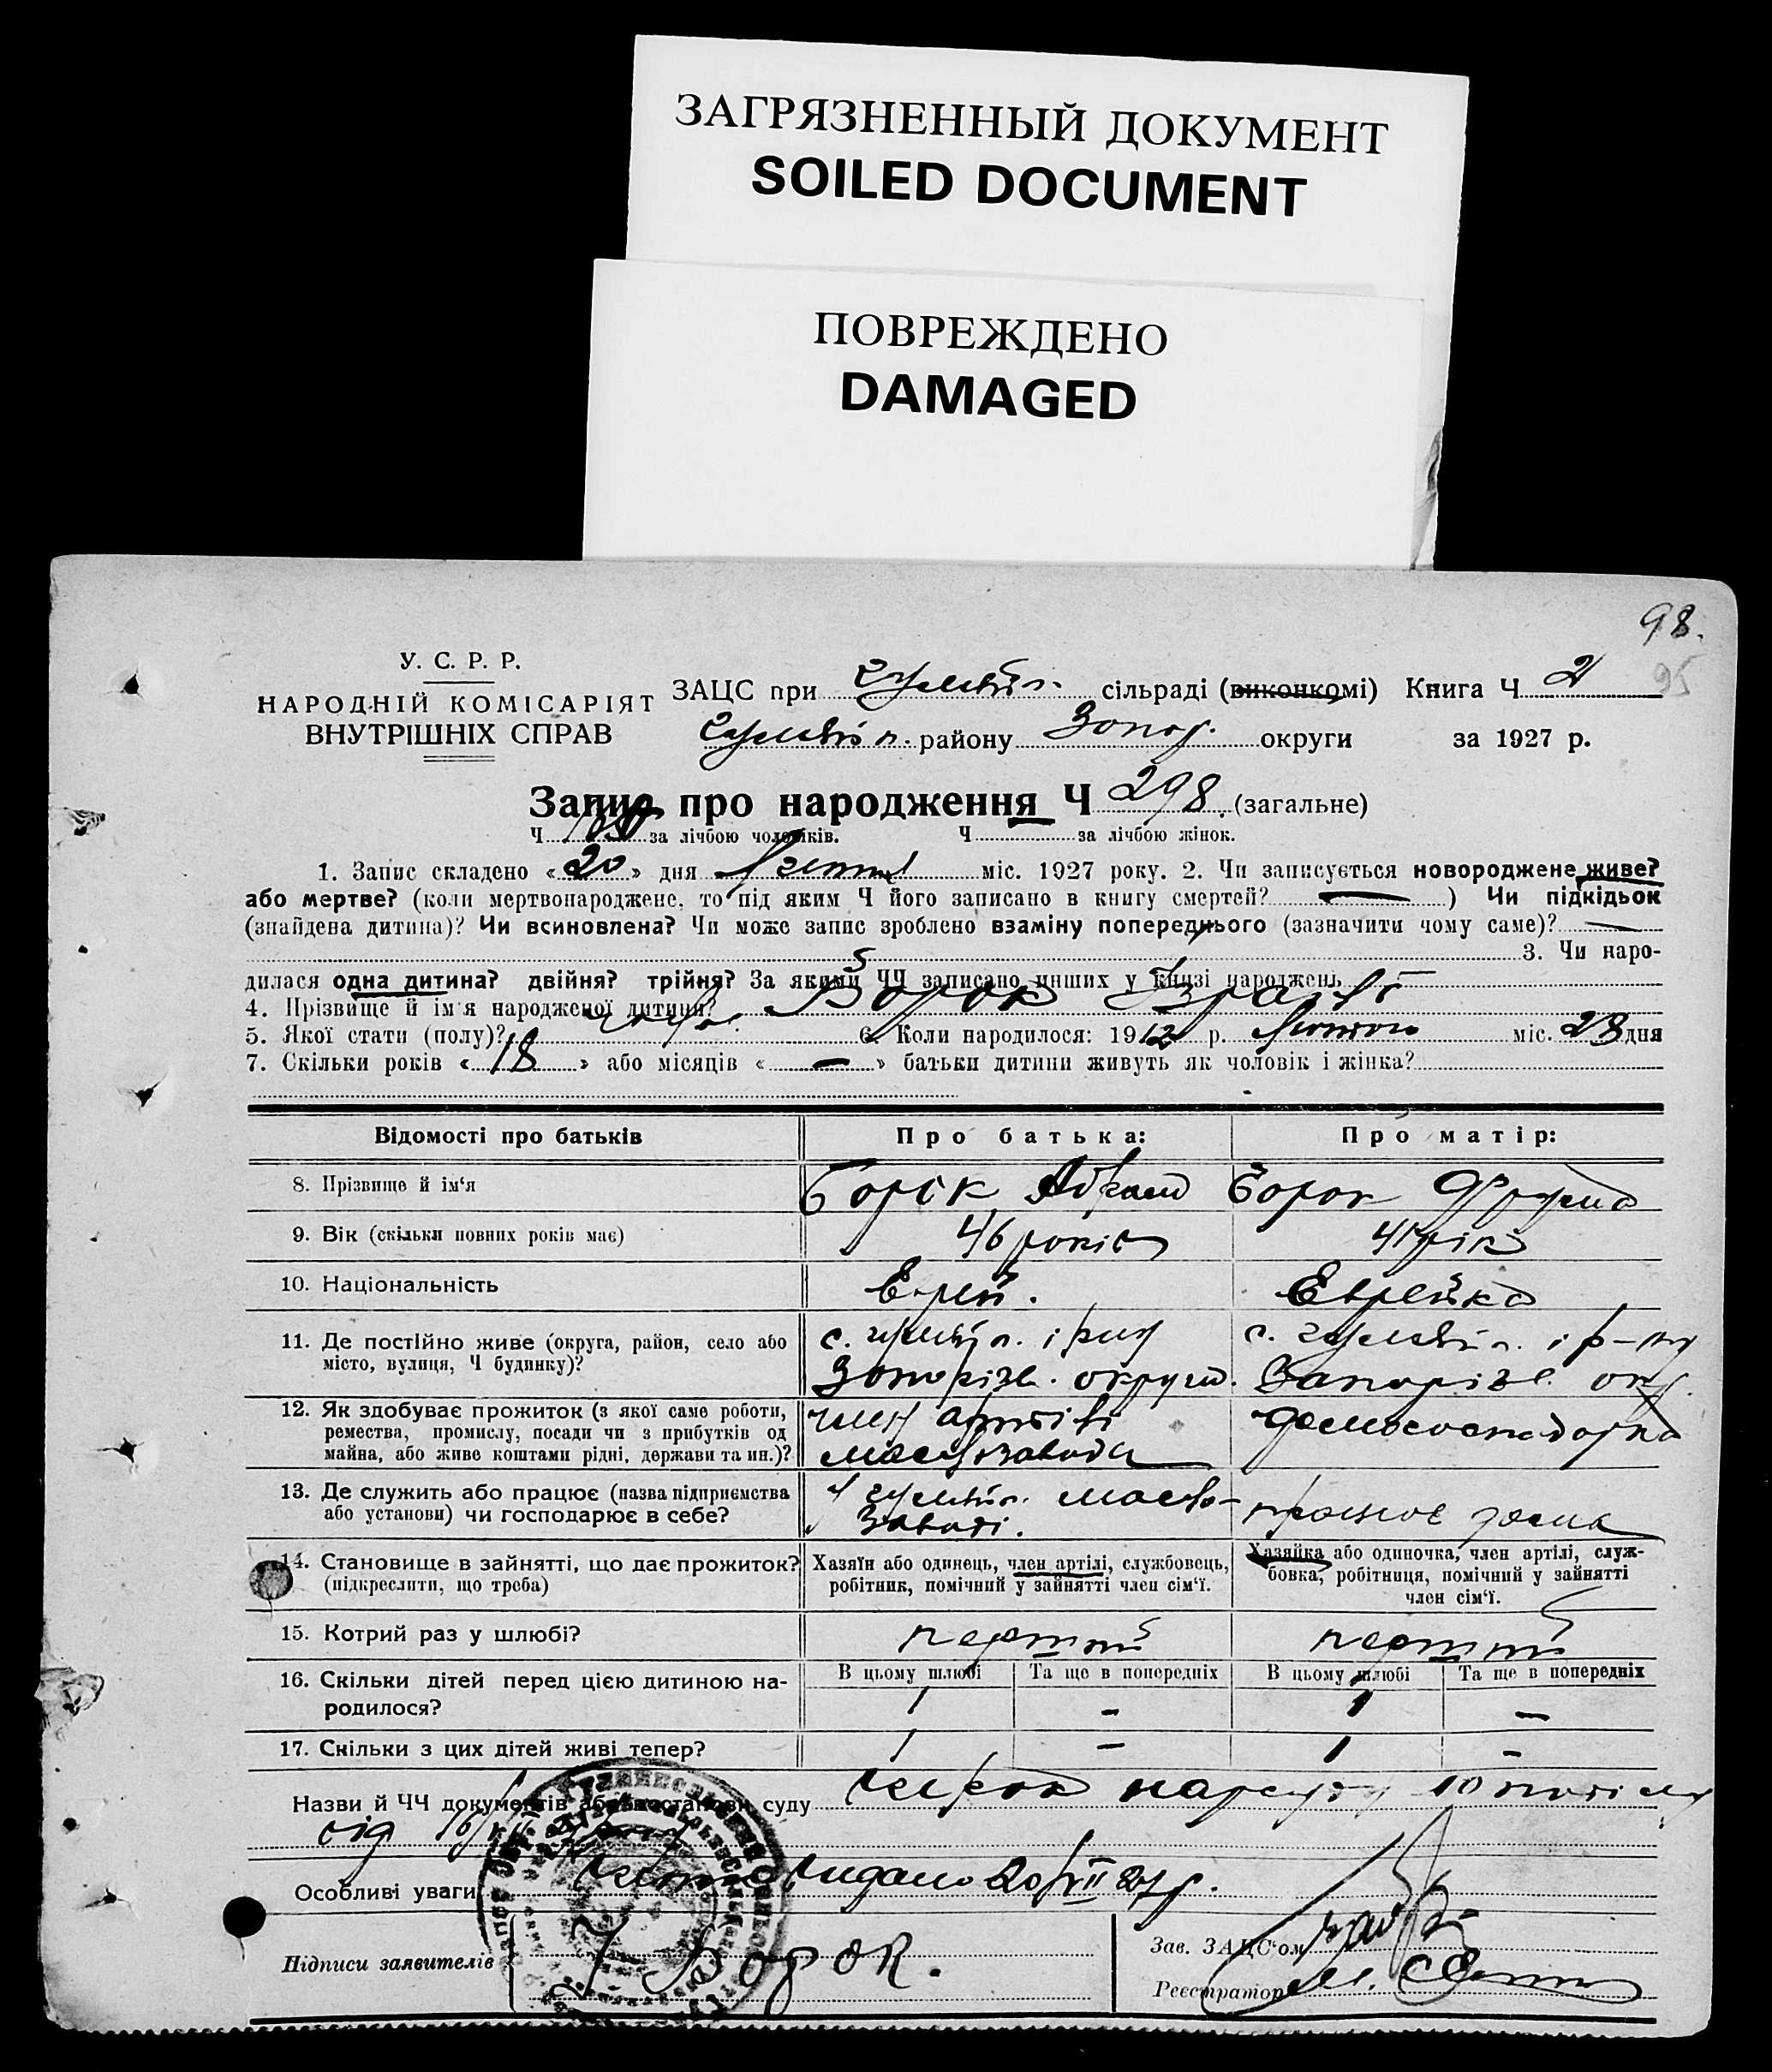 ЗАГРЯЗНЕННЫЙ ДОКУМЕНТ
SOILED DOCUMENT
ПОВРЕЖДЕНО
DAMAGED
98.
95
У. С. Р. Р.
НАРОДНІЙ КОМІСАРІЯТ
ВНУТРІШНІХ СПРАВ
ЗАЦС при сільраді (виконкомі) Книга Ч 2
району Запор. округи за 1927 р.
Запис про народження Ч 298 (загальне)
Ч за лічбою чоловіків. Ч за лічбою жінок.
1. Запис складено « 20 » дня міс. 1927 року. 2. Чи записується новороджене живе?
або мертве? (коли мертвонароджене, то під яким Ч його записано в книгу смертей? — ) Чи підкідьок
(знайдена дитина)? Чи всиновлена? Чи може запис зроблено взаміну попереднього (зазначити чому саме)? —
3. Чи наро-
дилася одна дитина? двійня? трійня? За якими ЧЧ записано инших у книзі народжень
4. Прізвище й ім'я народженої дитини? Борок Ізраїль
5. Якої стати (полу)? 6. Коли народилося: 1912 р. міс. 28 дня
7. Скільки років « 18 » або місяців « — » батьки дитини живуть як чоловік і жінка?
Відомості про батьків Про батька: Про матір:
8. Прізвище й ім'я Борок Абрам Борок Фрума
9. Вік (скільки повних років має) 46 років 41 рік
10. Національність Еврей. Еврейка
11. Де постійно живе (округа, район, село або
місто, вулиця, Ч будинку)?
с. і р-ну
Запорізь. округи.
с. і р-ну
Запорізь. окр.
12. Як здобуває прожиток (з якої саме роботи,
ремества, промислу, посади чи з прибутків од
майна, або живе коштами рідні, держави та ин.)?
член артілі
маслозавода
домогосподарка
13. Де служить або працює (назва підприємства
або установи) чи господарює в себе?
У масло-
заводі.
працює дома
14. Становище в зайнятті, що дає прожиток?
(підкреслити, що треба)
Хазяїн або одинець, член артілі, службовець,
робітник, помічний у зайнятті член сім'ї.
Хазяйка або одиночка, член артілі, служ-
бовка, робітниця, помічний у зайнятті
член сім'ї.
15. Котрий раз у шлюбі? перший перший
16. Скільки дітей перед цією дитиною на-
родилося?
В цьому шлюбі Та ще в попередніх В цьому шлюбі Та ще в попередніх
1 — 1 —
17. Скільки з цих дітей живі тепер? 1 — 1 —
Назви й ЧЧ документів або постанови суду нарсуду
від
Особливі уваги видано 20/VII 27 р.
Підписи заявителів Борок.
Зав. ЗАЦС'ом
Реєстратор